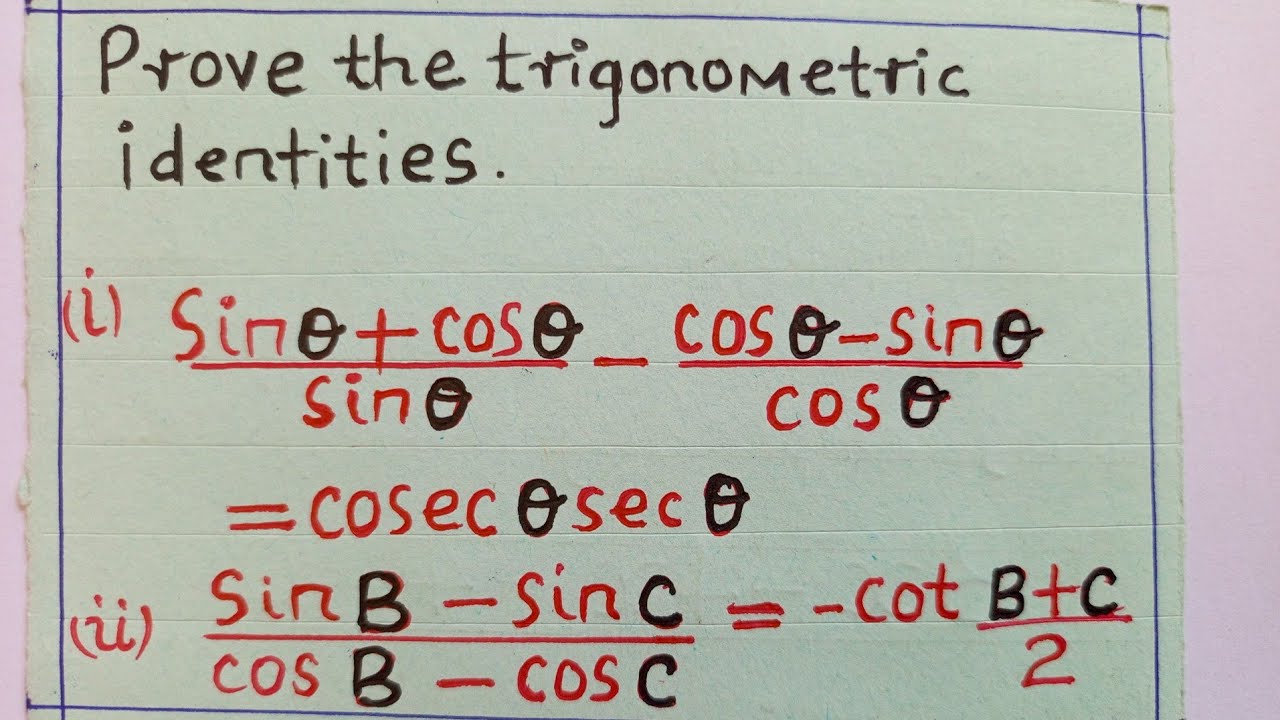 Prove the trigonometric
identities.
(i) sinθ+cosθ/sinθ − cosθ−sinθ/cosθ
=cosecθsecθ
(ii) sinB−sinC/cosB−cosC = -cot B+C/2